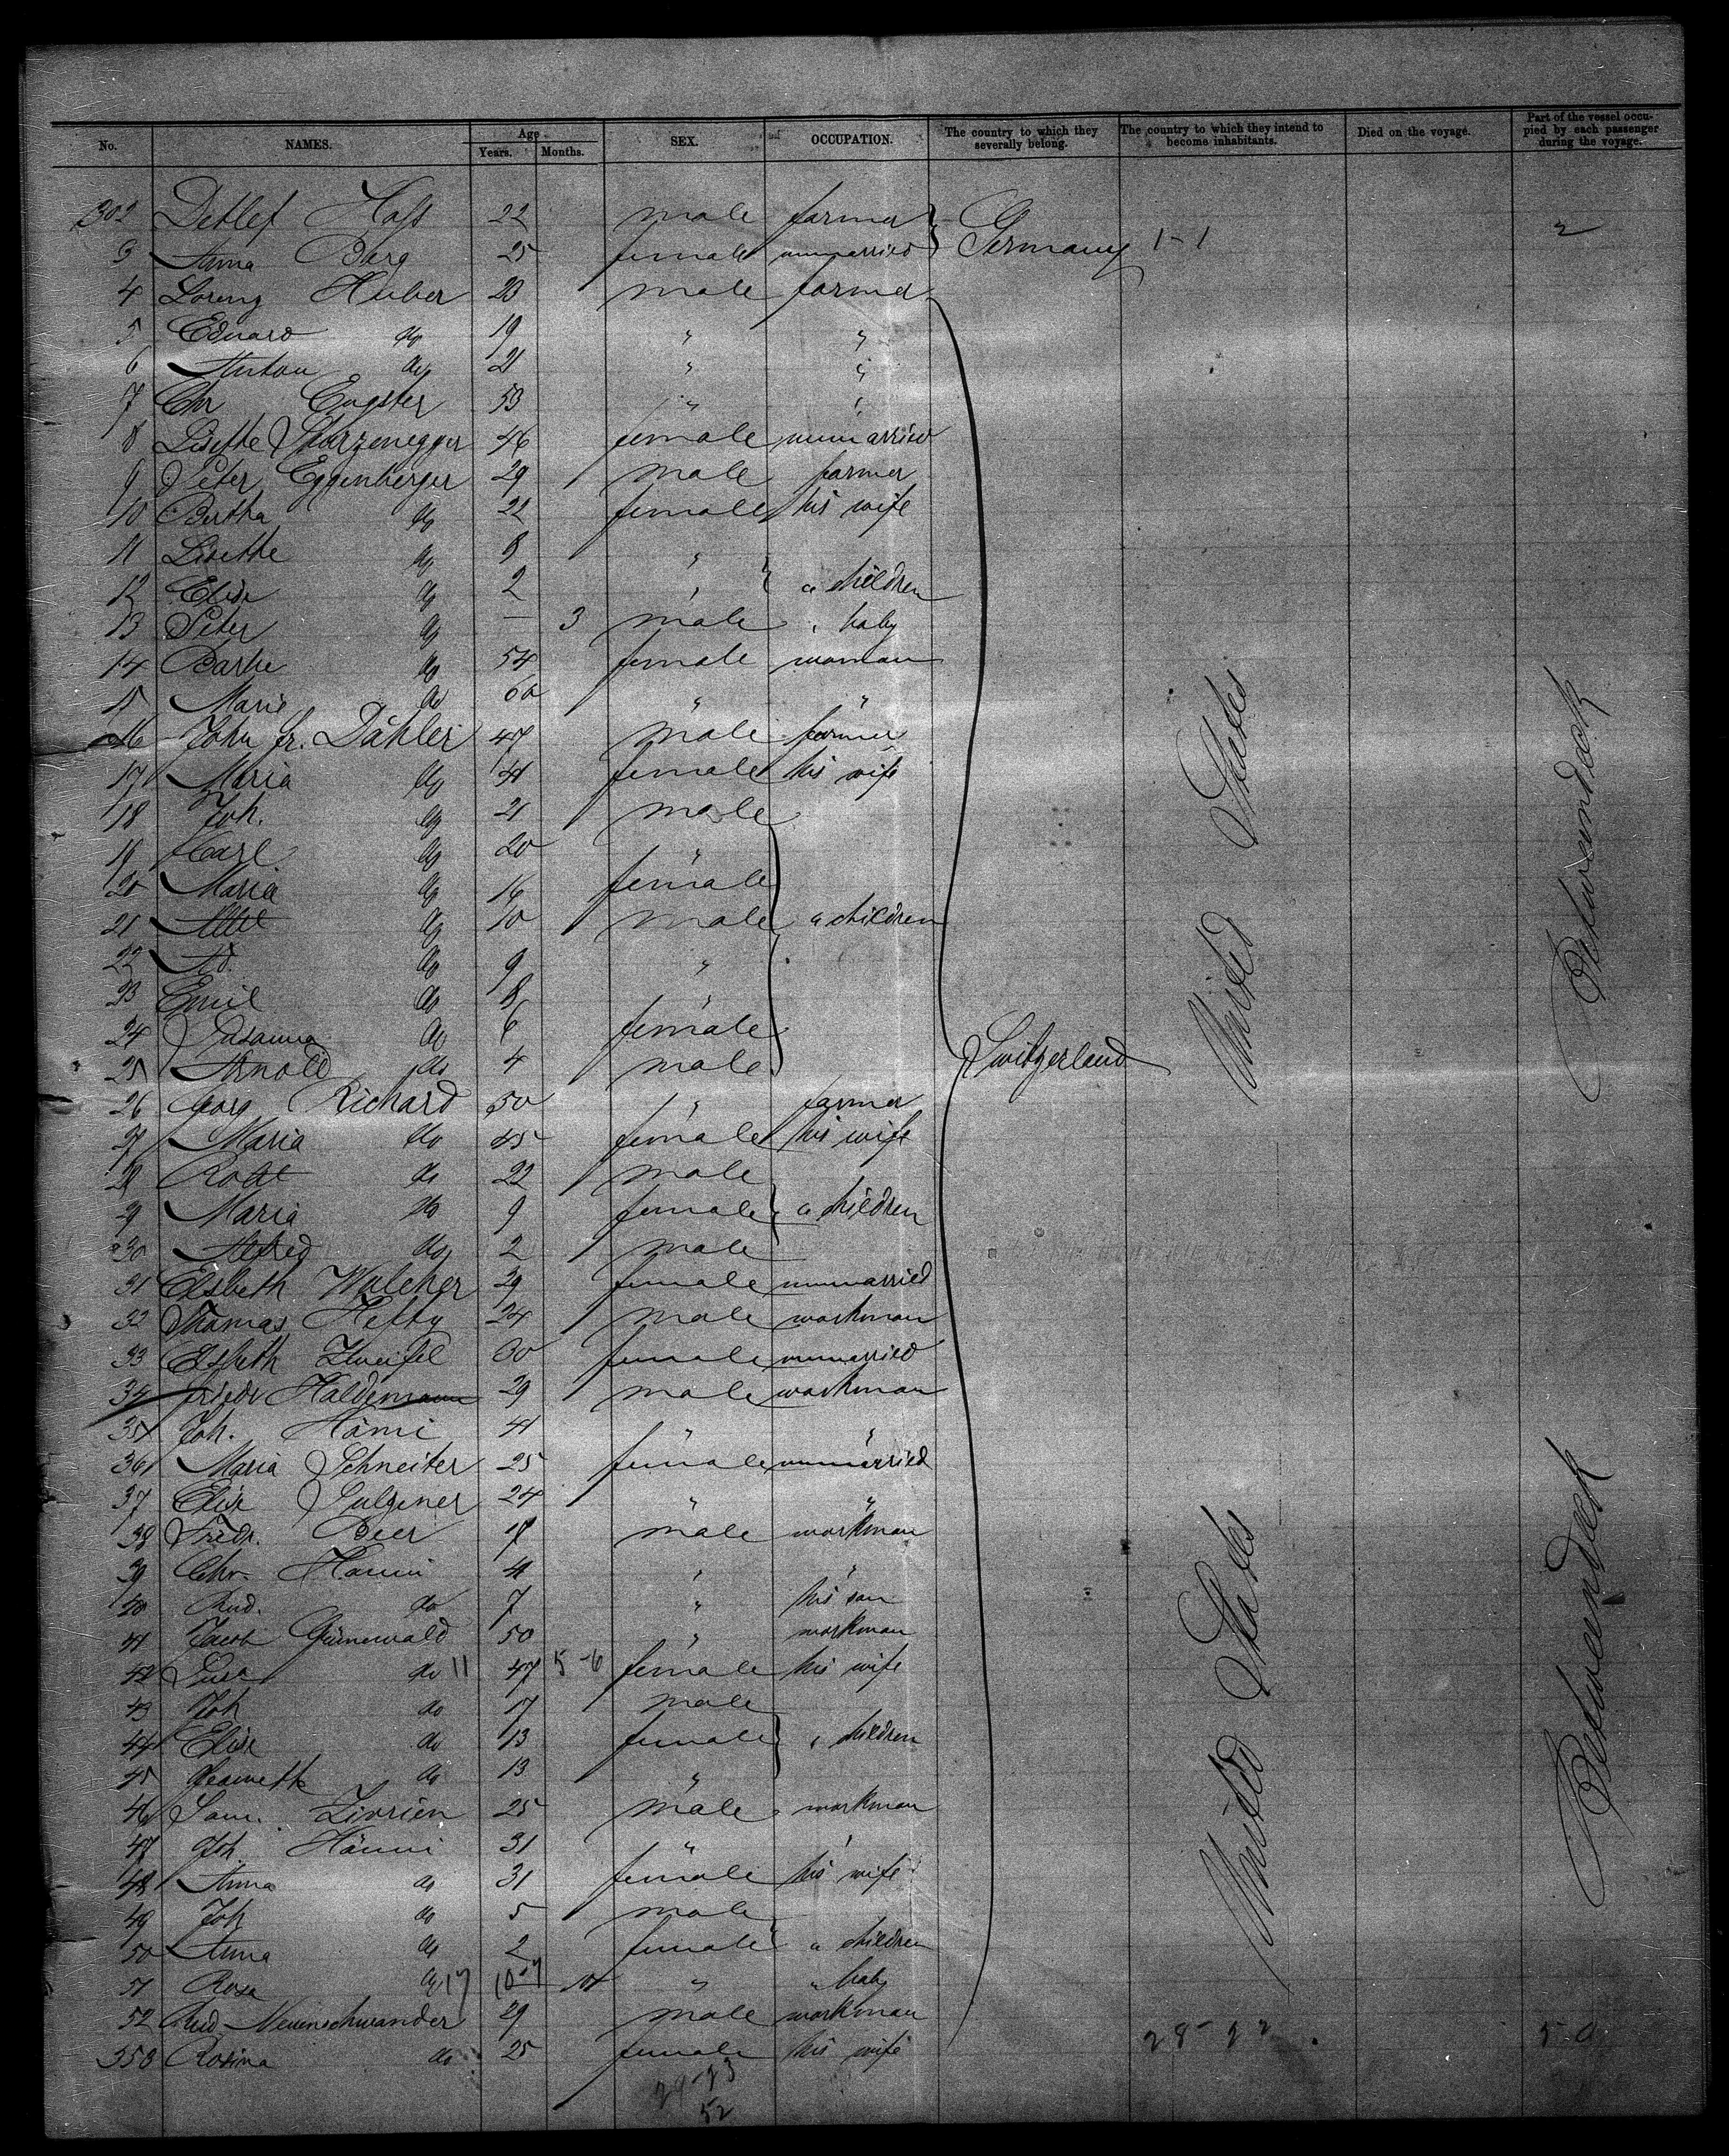 No. NAMES. Age Years. Months. SEX. OCCUPATION. The country to which they severally belong. The country to which they intend to become inhabitants. Died on the voyage. Part of the vessel occupied by each passenger during the voyage.
302 Detlef Hass 22 male farmer Germany 1-1 2
3 Anna Barg 25 female unmarried
4 Lorenz Huber 23 male farmer
5 Eduard do 19 " "
6 Anton do 21 " "
7 Chr Engster 53 " "
8 Lisette Sturzenegger 46 female unmarried
9 Peter Eggenberger 29 male farmer
10 Bertha do 22 female his wife
11 Lisette do 3 "
12 Elise do 2 " " children
13 Peter do — 3 male " baby
14 Barbe do 54 female woman
15 Marie do 60 " "
16 John Dähler 47 male farmer
17 Maria do 41 female his wife
18 Joh. do 21 male
19 Carl do 20 "
20 Maria do 16 female
21 do 10 male " children
22 Ad. do 9 "
23 Emil do 8 "
24 Susanna do 6 female
25 Arnold do 4 male
Switzerland
United States
Between deck
26 Georg Richard 50 " farmer
27 Maria do 45 female his wife
28 do 22 male
29 Maria do 9 female " children
30 Alfred do 2 male
31 Elsbeth Walcher 29 female unmarried
32 Thomas Hefty 24 male workman
33 Elsbeth Zweifel 30 female unmarried
34 Friedr Haldemann 29 male workman
35 Joh. Hänni 41 " "
36 Maria Schneiter 25 female unmarried
37 Elise Sulzener 24 " "
38 Fredr. Beer 17 male workman
39 Chr. Hänni 41 " "
40 Rud. do 7 " his son
41 Jacob Grünewald 50 " workman
42 do 11 47 5-6 female his wife
43 Joh do 17 male
44 Elise do 13 female " children
45 Jeanette do 13 "
46 Sam. 25 male workman
47 Joh. Hänni 31 " "
48 Anna do 31 female his wife
49 Joh do 5 male
50 Anna do 2 female " children
51 Rosa do 17 10 " " baby
52 Rud Neuenschwander 29 male workman
353 Rosina do 25 female his wife
United States
Between deck
29-23
52